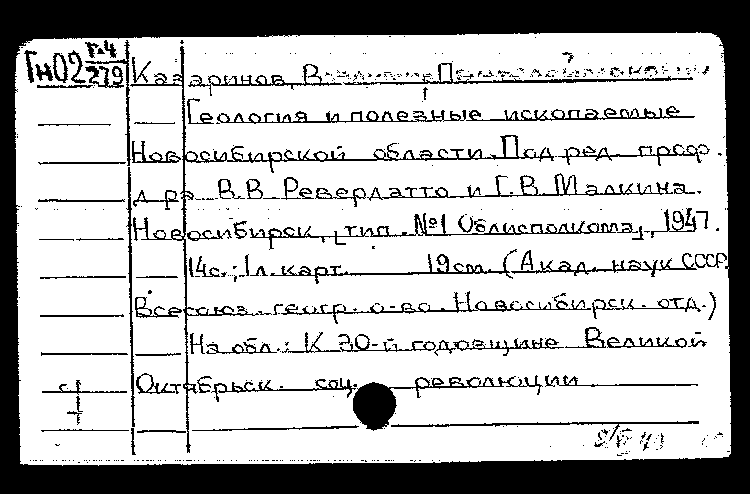 Гн02 г-4/279 Казаринов, В
Геология и полезные ископаемые
Новосибирской области. Под ред. проф.
д-ра В.В. Ревердатто и Г.В. Малкина.
Новосибирск, [тип. №1 Облисполкома], 1947.
14с.; 1л. карт. 19см. (Акад. наук СССР.
Всесоюз. геогр. о-во. Новосибирск. отд.)
На обл.: К 30-й годовщине Великой
Октябрьск. соц. революции.